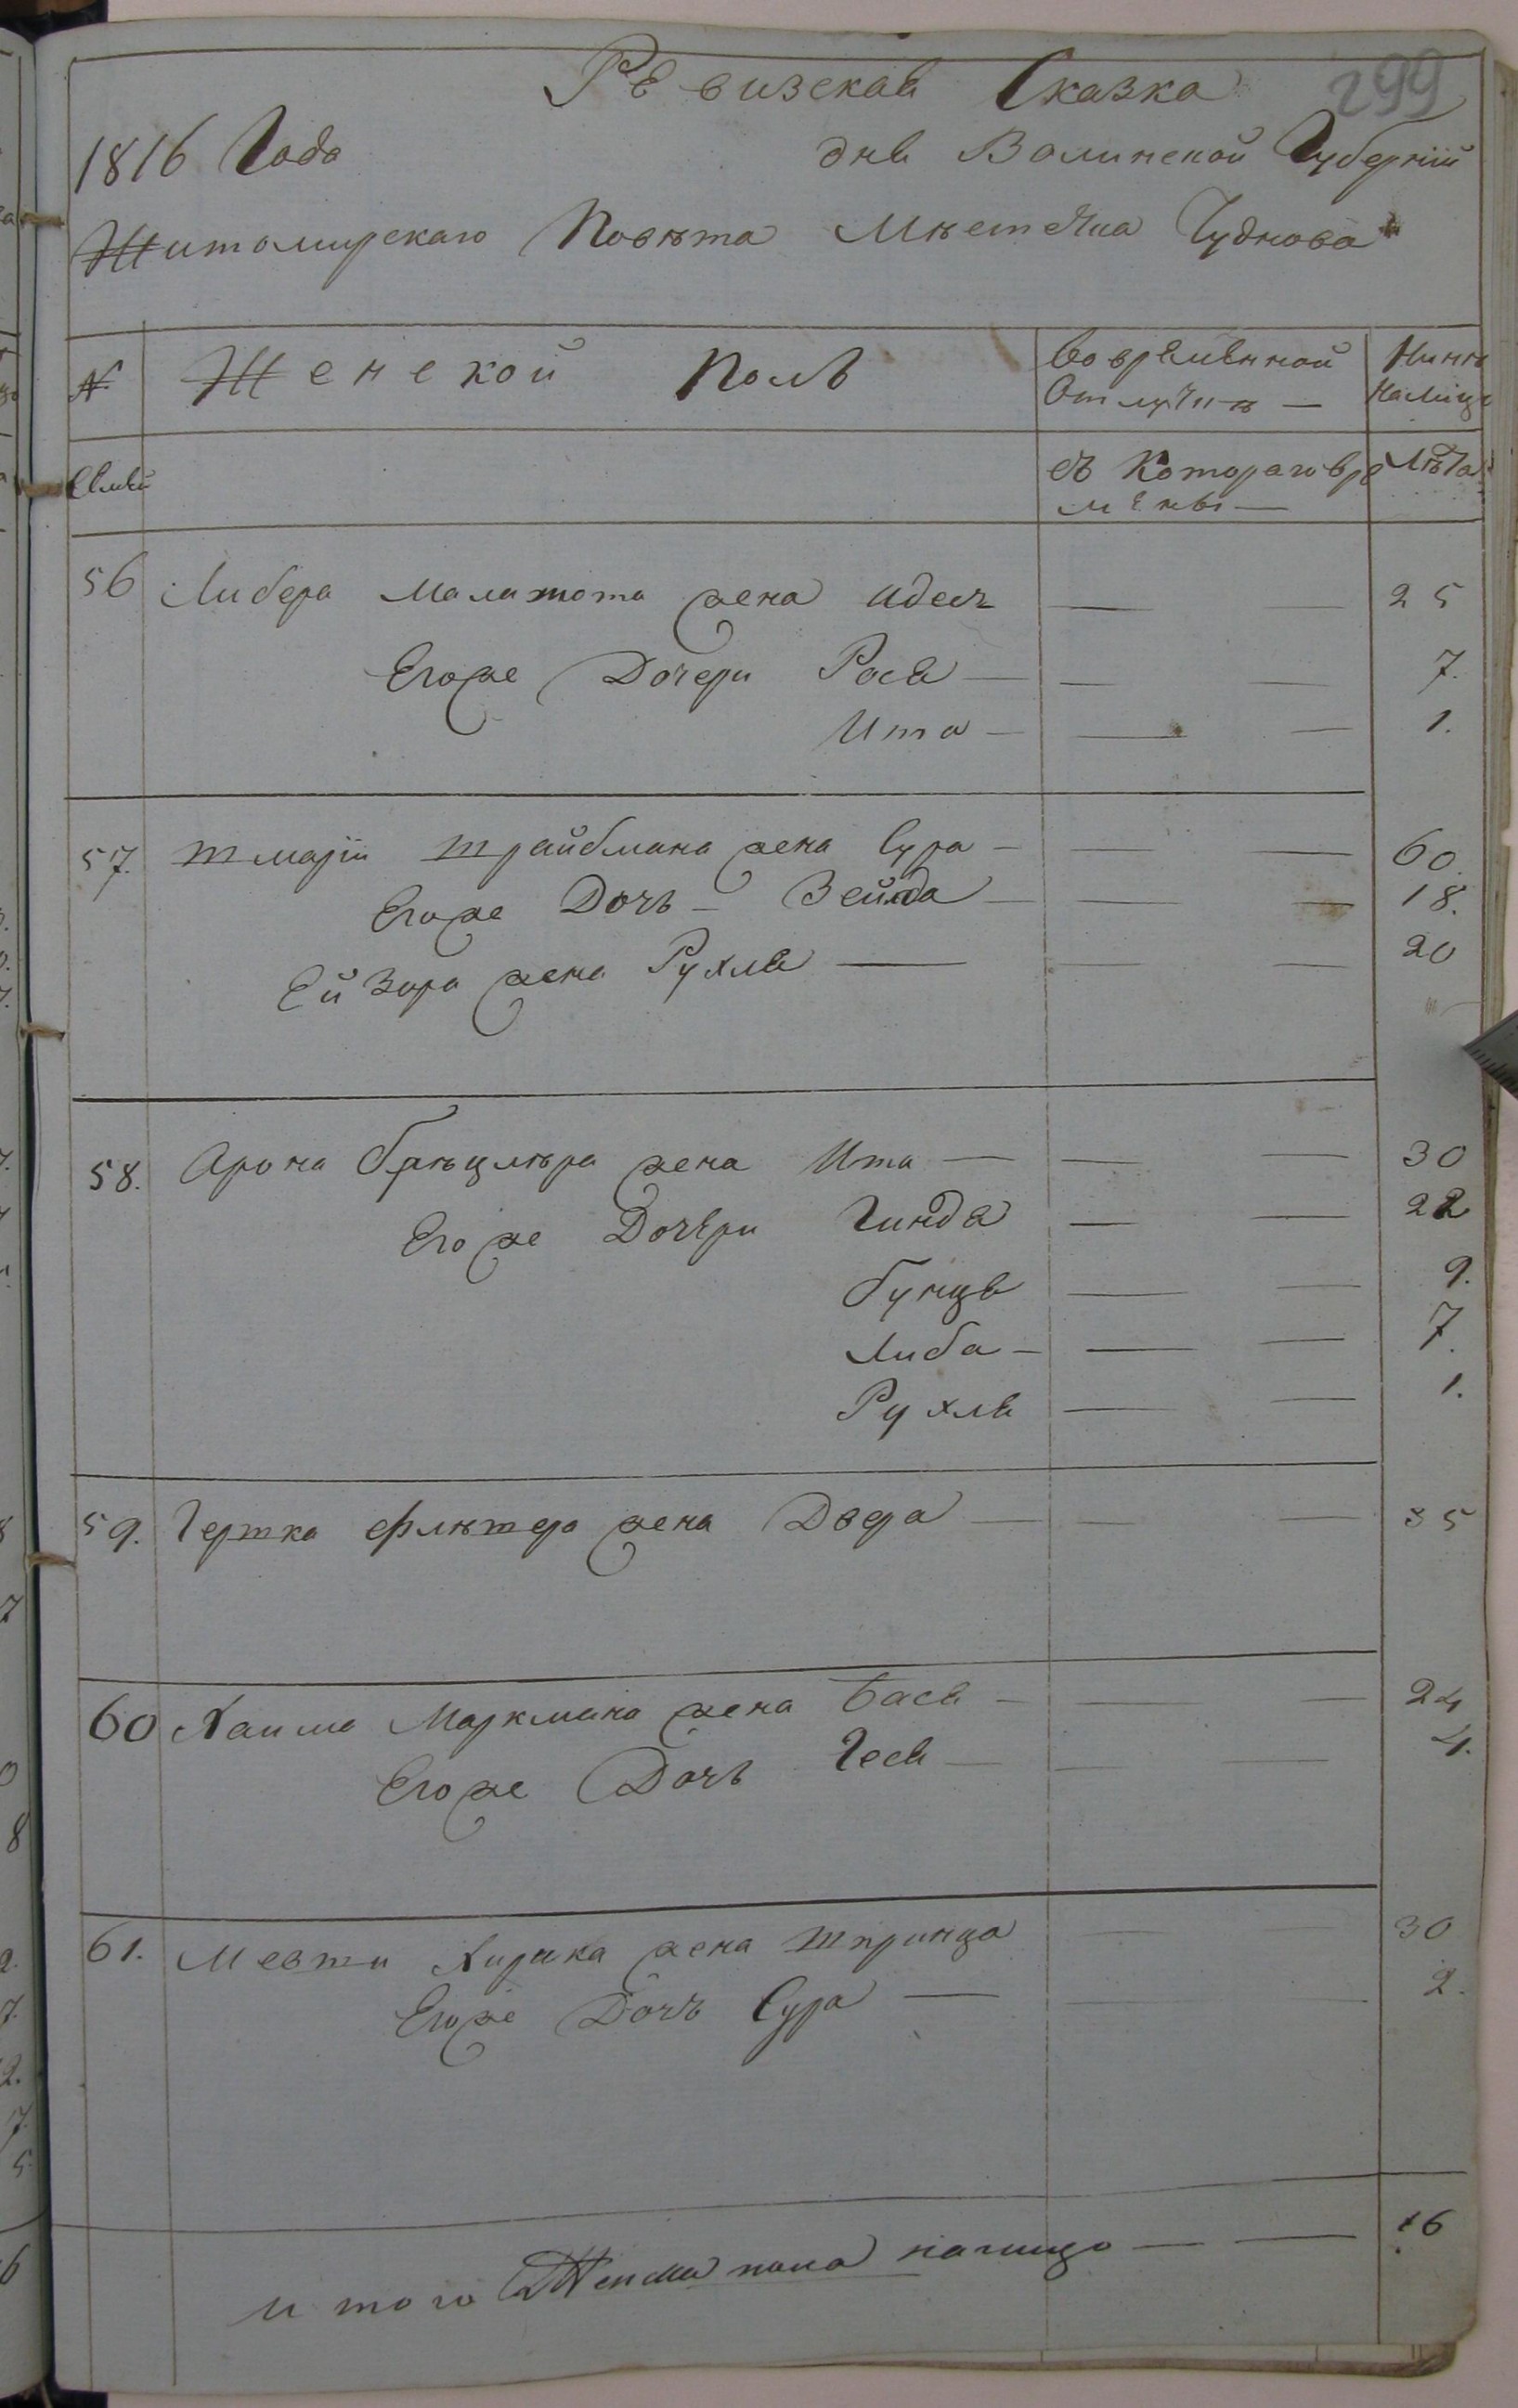 299
Ревизская Сказка
1816 Года дня Волинской Губернїи
Житомирскаго Повѣта Мѣстечка Чуднова
№ Женской Полъ Во временной Отлучкѣ — Нинѣ Налицо
Семьи съ Котораго вре Лѣта
мѣны —
56 Либера Маламота жена Идесъ — — 25
Егоже Дочери Рося — — — 7.
Ита — — — 1.
57. Шмарїи Трайбмана жена Сура — — — 60.
Егоже Дочь — Зейлда — — — 18.
Ейзора жена Рухля — — — 20
58. Арона Брѣцлѣра жена Ита — — — 30
Егоже Дочери Гинда — — 22
Бунця — — 9.
Либа — — — 7.
Рухля — — 1.
59. Гершка Флѣшера жена Двера — — — 35
60 Хаима Маркмана жена Бася — — — 24
Егоже Дочь Геся — — — 4.
61. Мевши Хирика жена Шпринца — — 30
Егоже Дочь Сура — — — 2.
Итого Женска пола налицо — — 16